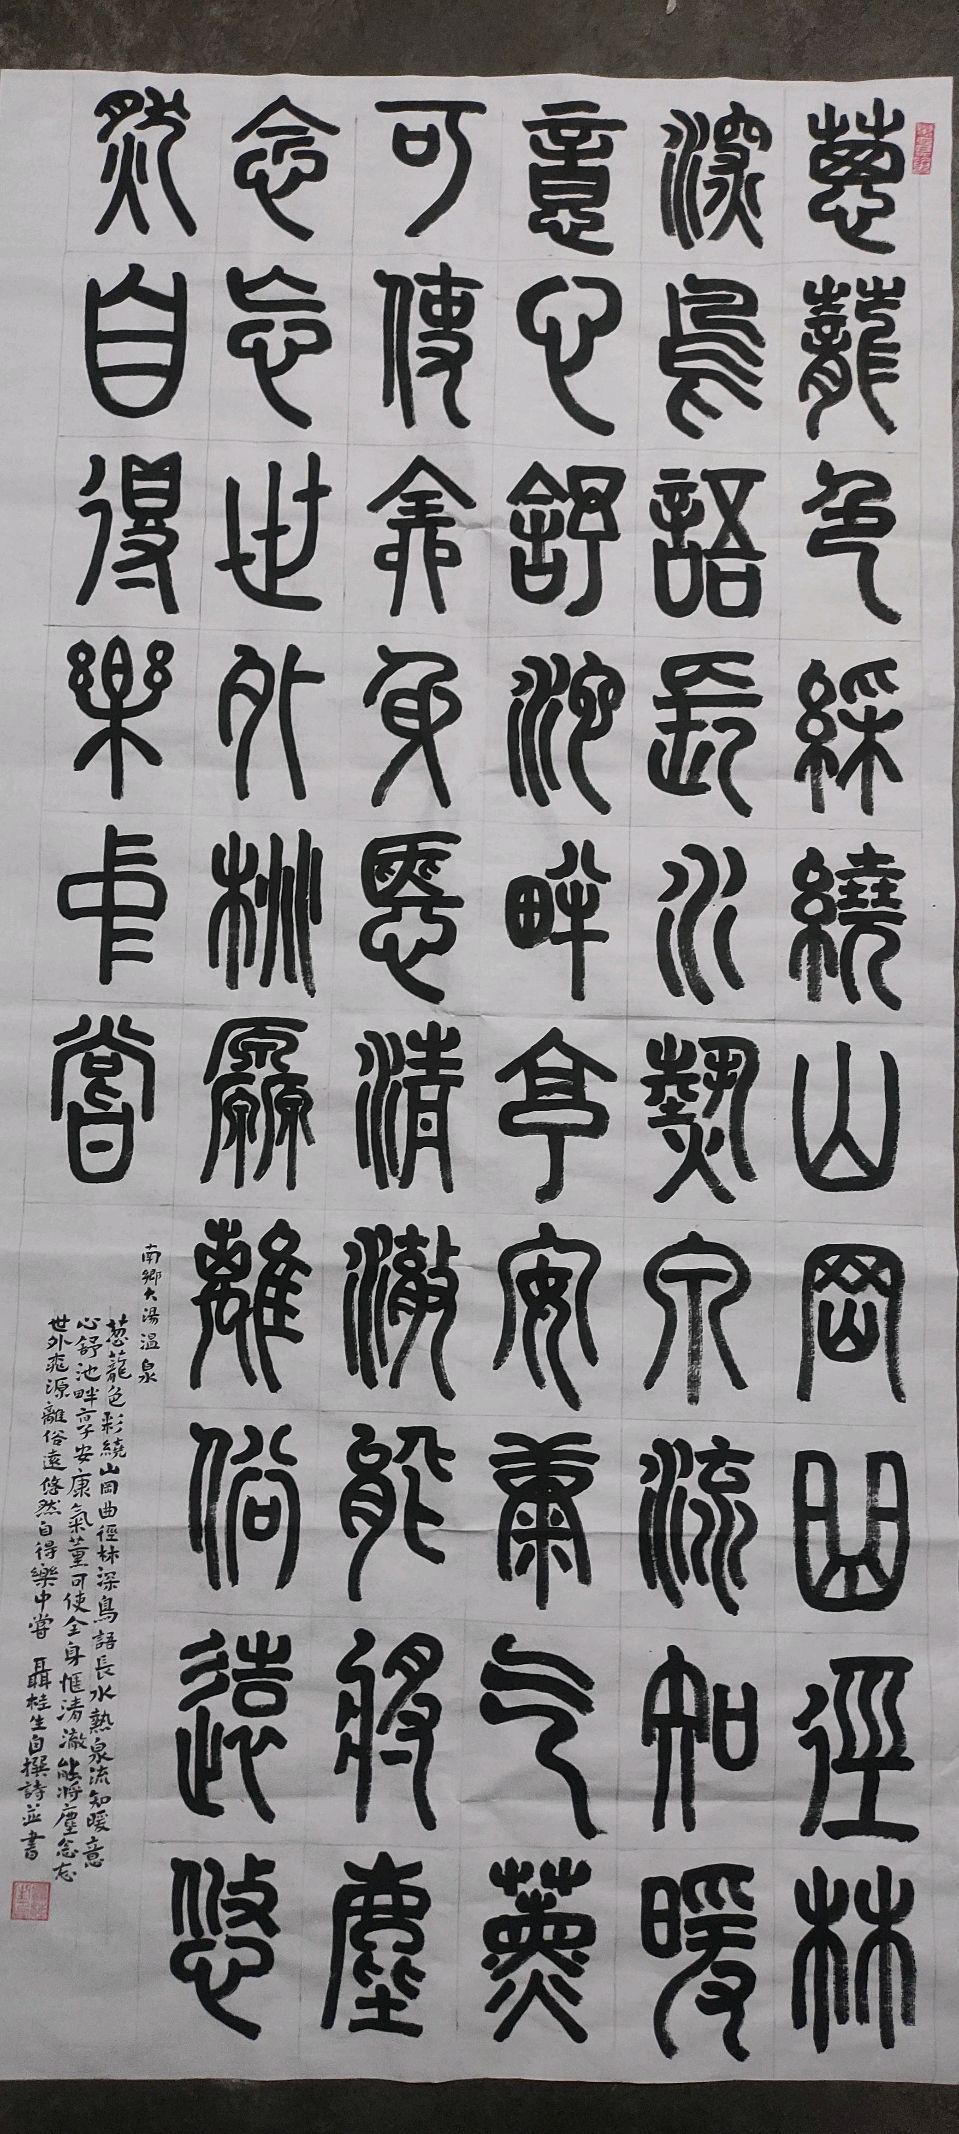 蔥蘢色綵繞山岡曲徑林
深鳥語長水熱泉流知暖
意心舒池畔享安康气薰
可使全身愜清澈能將塵
念忘世外桃源離俗遠悠
然自得樂中嘗
南鄉大湯温泉
葱蘢色彩繞山岡曲徑林深鳥語長水熱泉流知暖意
心舒池畔享安康氣薰可使全身愜清澈能將塵念忘
世外桃源離俗遠悠然自得樂中嘗 聶桂生自撰詩並書